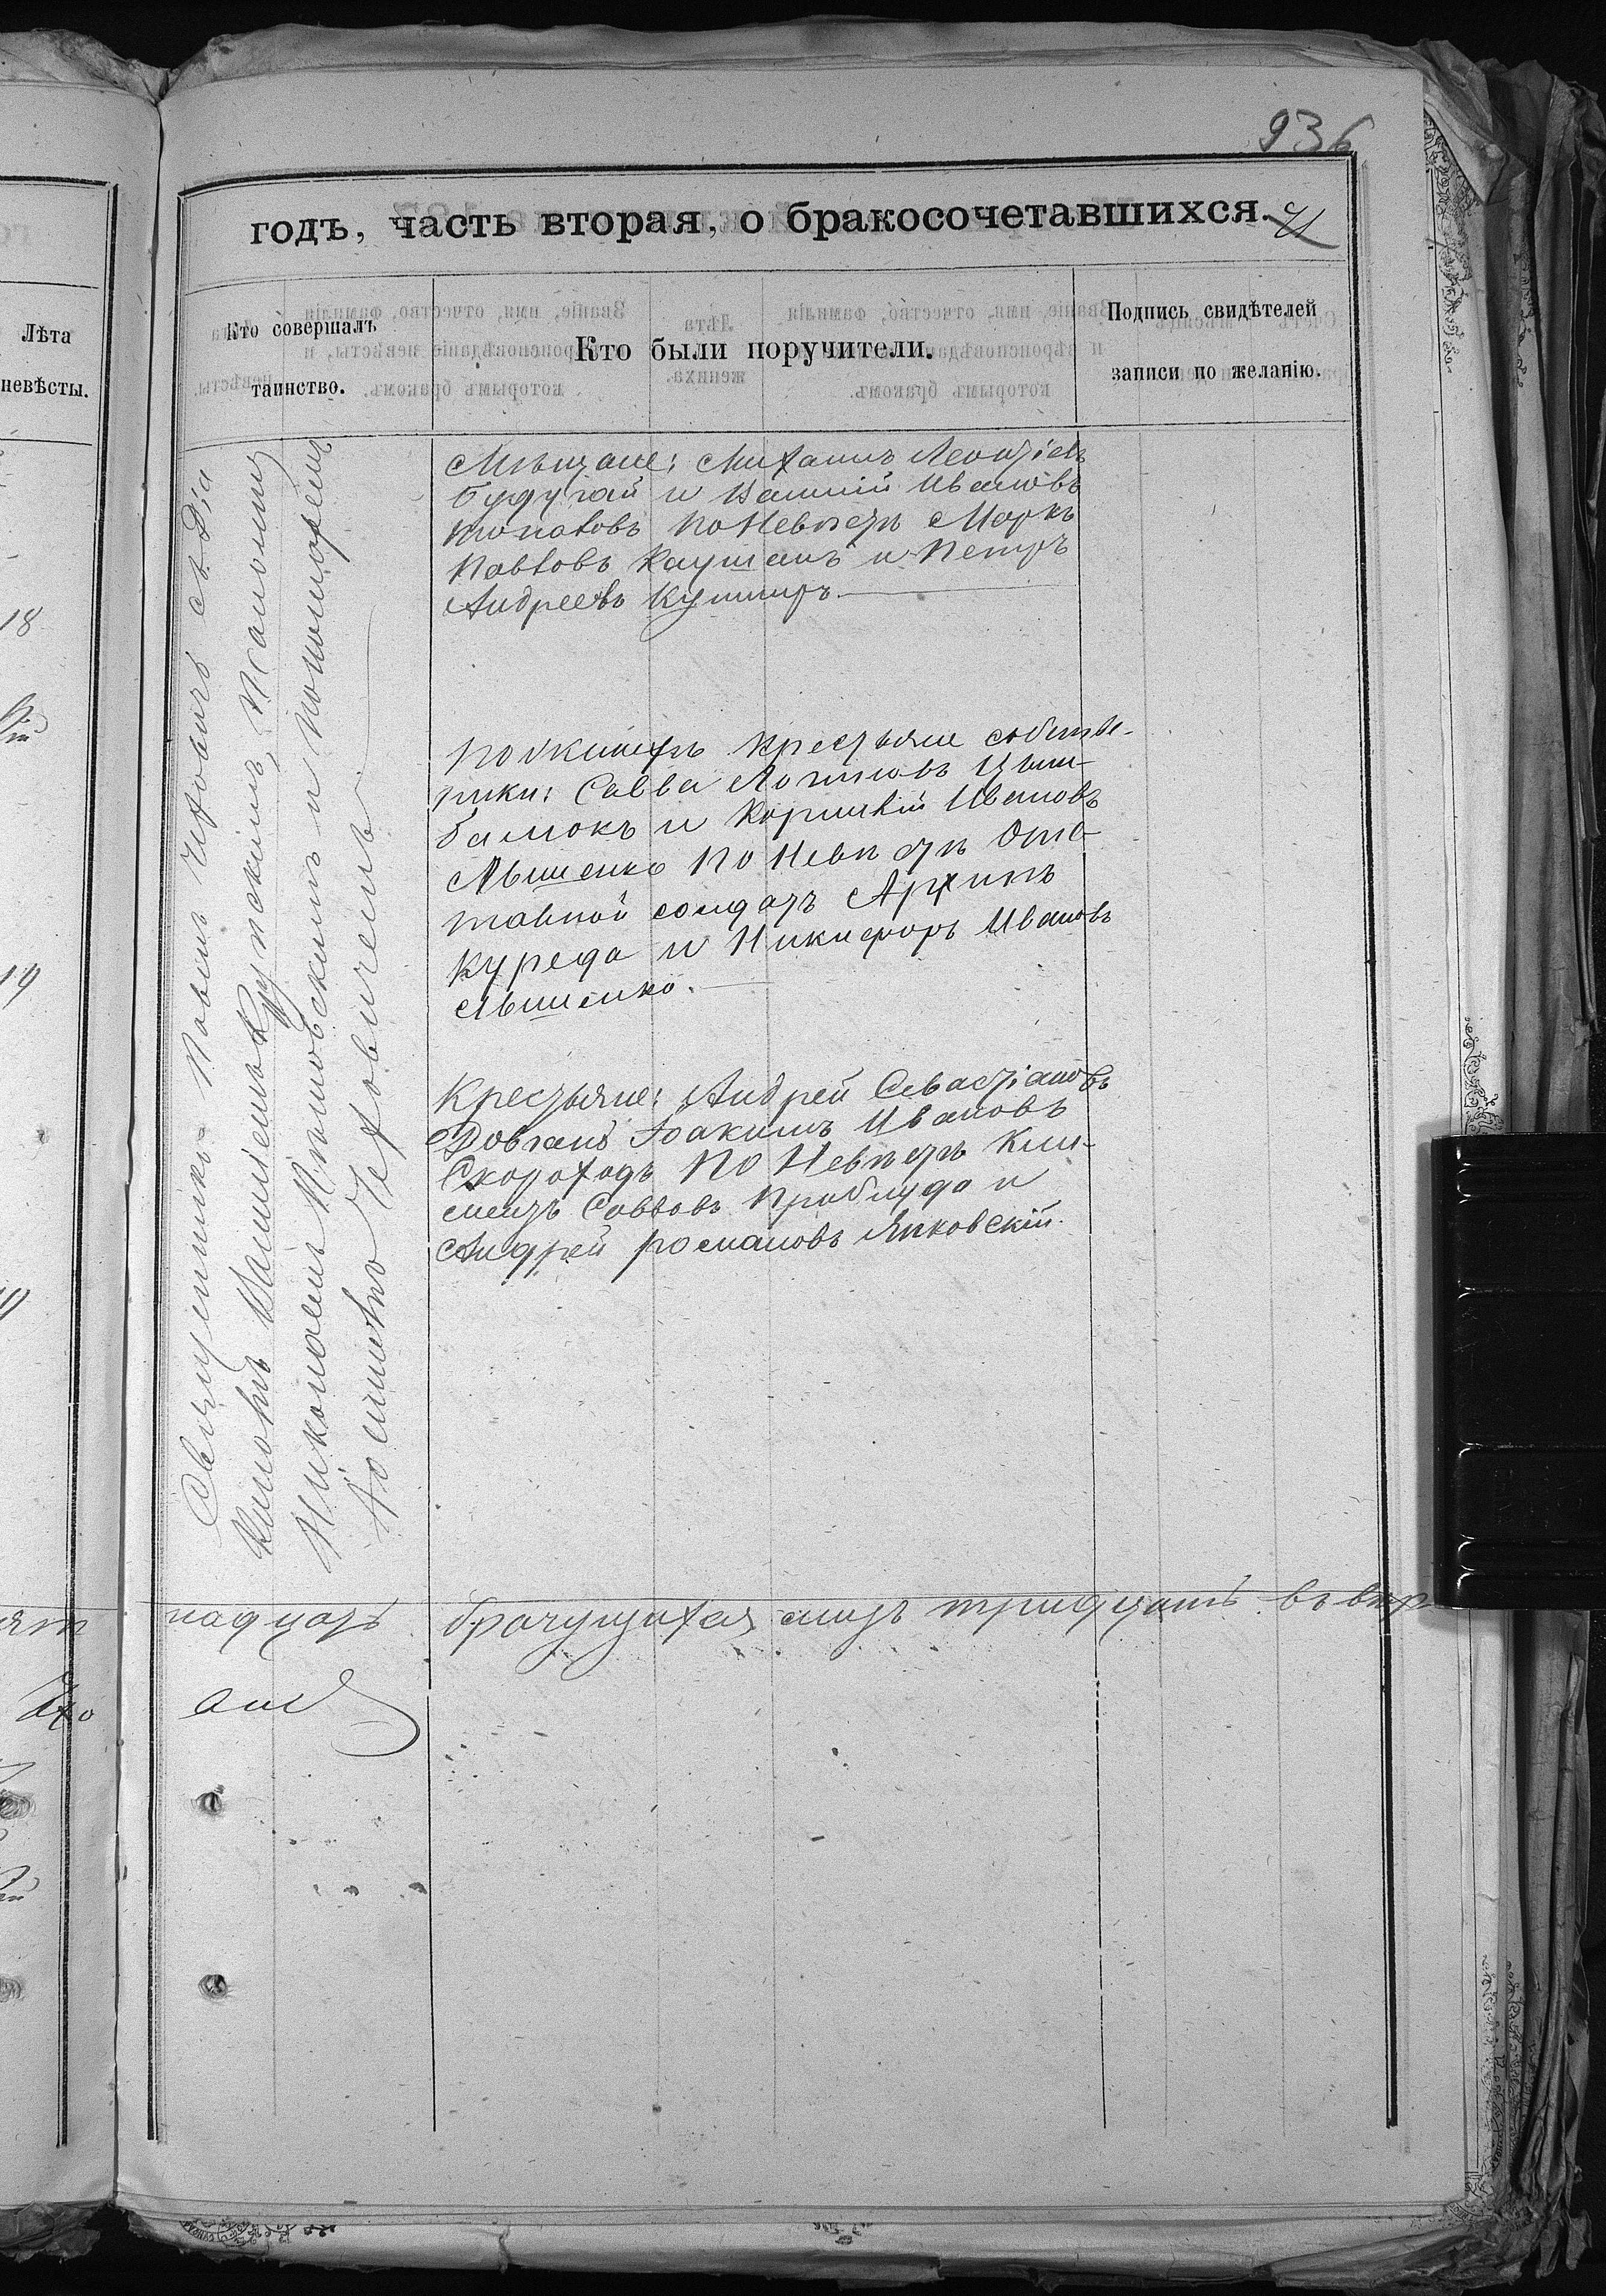 936
годъ, часть вторая, о бракосочетавшихся.
41
Лѣта
невѣсты.
Кто совершалъ
таинство.
Кто были поручители.
Подпись свидѣтелей
записи по желанію.
18
19
19
Священникъ Павелъ Чеховичъ съ Д.
Крупскимъ, Псаломщ
Николаемъ и пономаремъ
Чеховичемъ
Мѣщане: Михаилъ Леонтіевъ
Будугай и Василій Ивановъ
По Невѣстѣ Маркъ
Павловъ Каушанъ и Петръ
Андреевъ Кушниръ
По Женихѣ крестьяне собстве-
ники: Савва Логиновъ Цым-
балюкъ и Корнилій Ивановъ
Ляшенко По Невѣстѣ Отс-
тавной солдатъ Архипъ
Куреда и Никифоръ Ивановъ
Ляшенко.
Крестьяне: Андрей Севастіановъ
Довгань Іоакимъ Ивановъ
Скороходъ По Невѣстѣ Кли-
ментъ Саввовъ Приблуда и
Андрей Романовъ Янковскій.
надцать брачущихся лицъ тридцать